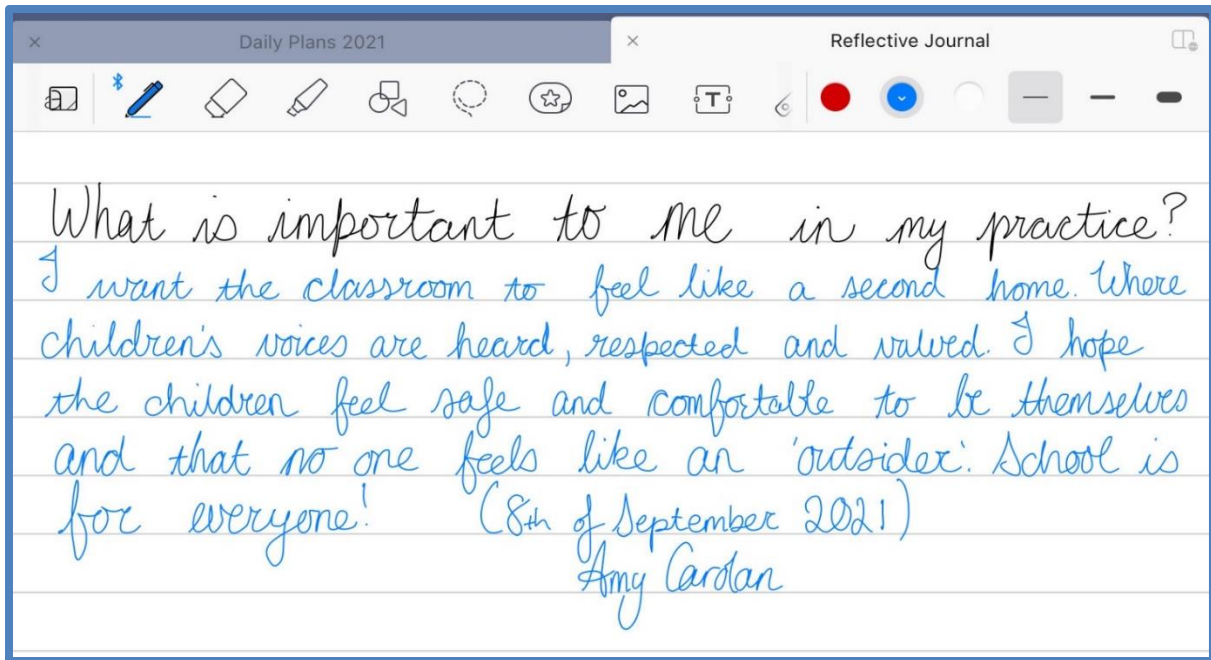 Daily Plans 2021
Reflective Journal
What is important to me in my practice?
I want the classroom to feel like a second home. Where
children's voices are heard, respected and valued. I hope
the children feel safe and comfortable to be themselves
and that no one feels like an 'outsider'. School is
for everyone! (8th of September 2021)
Amy Carolan